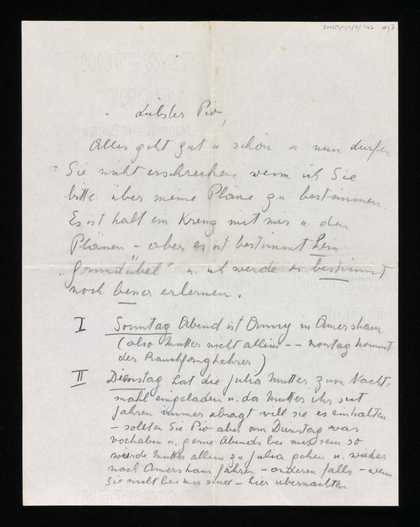 Liebster Pio,
Alles geht gut u schön u nun dürfen
Sie nicht erschrecken wenn ich Sie
bitte über meine Pläne zu bestimmen
Es ist halt ein Kreuz mit mir u den
Plänen – aber es ist bestimmt kein
„Grundübel" u. ich werde es bestimmt
noch besser erlernen.
I Sonntag Abend ist in Amersham
(also Mutter nicht allein -- montag kommt
der Rauchfangkehrer)
II Dienstag hat die Julia Mutter zum Nacht-
mahl eingeladen u. da Mutter ihr seit
Jahren immer absagt will sie es einhalten
– sollten Sie Pio aber am Dienstag was
vorhaben u. gerne Abends bei mir sein so
würde Mutter allein zu Julia gehen u. wieder
nach Amersham fahren – anderen falls – wenn
Sie nicht bei mir sind – hier übernachten